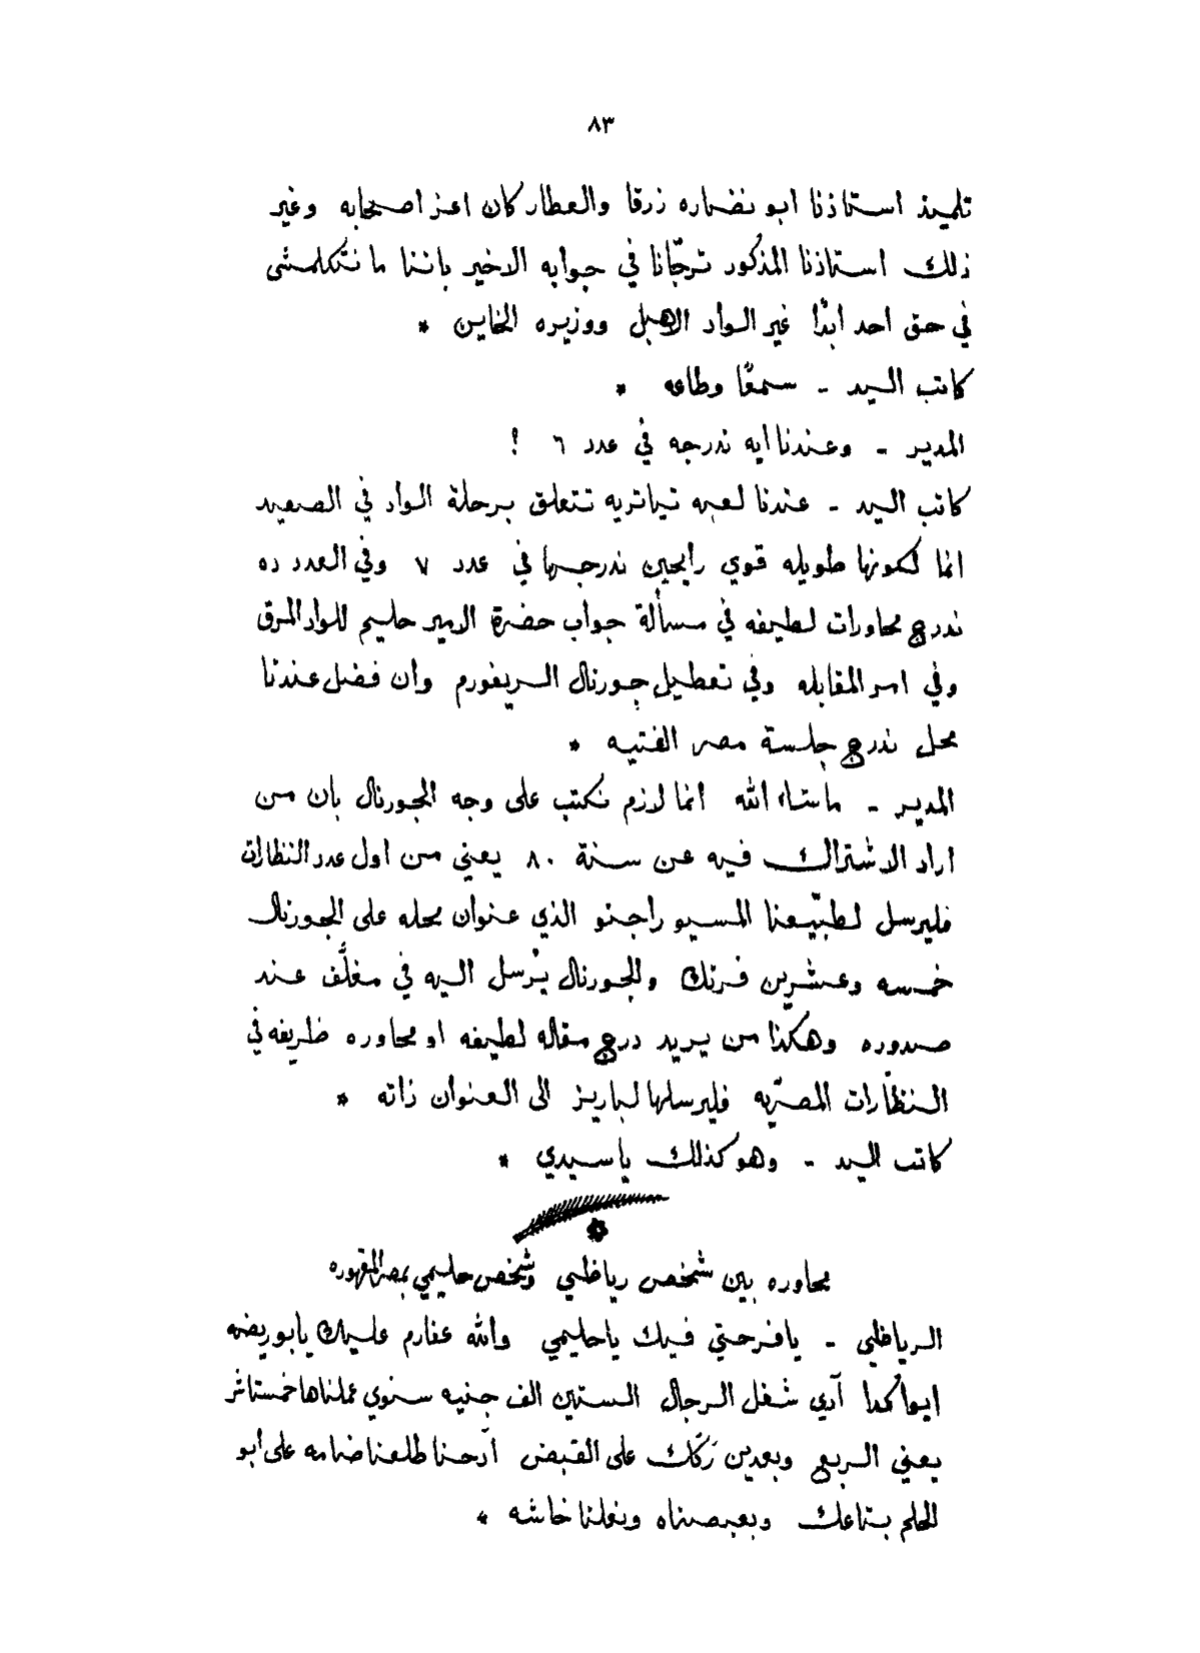 ٨٣
تلميذ استاذنا ابو نضاره زرقا والعطار كان اعز اصحابه وغير
ذلك استاذنا المذكور ترجّانا في جوابه الاخير باننا ما نتكلمشى
في حق احد ابدًا غير الواد الاهبل ووزيره الخاين *
كاتب اليد - سمعًا وطاعه *
المدير - وعندنا ايه ندرجه في عدد ٦ ؟
كاتب اليد - عندنا لعبه تياتريه تتعلق برحلة الواد في الصعيد
انما لكونها طويله قوي رايحين ندرجها في عدد ٧ وفي العدد ده
ندرج محاورات لطيفه في مسألة جواب حضرة الامير حليم للواد المرق
وفي امر المقابله وفي تعطيل جورنال الريفورم وان فضل عندنا
محل ندرج جلسة مصر الفتيه *
المدير - ماشاء الله انما لازم نكتب على وجه الجورنال بان من
اراد الاشتراك فيه عن سنة ٨٠ يعني من اول عدد النظارات
فليرسل لطبّيعنا المسيو راجنو الذي عنوان محله على الجورنال
خمسه وعشرين فرنك والجورنال يُرسل اليه في مغلَّف عند
صدوره وهكذا من يريد درج مقاله لطيفه او محاوره ظريفه في
النظّارات المصريّه فليرسلها لباريز الى العنوان ذاته *
كاتب اليد - وهو كذلك يا سيدي *
محاوره بين شخص رياظلي وشخص حليمي بمصر المقهوره
الرياظلي - يا فرحتي فيك يا حليمي والله عفارم عليك يا بو ريضه
ايوا كدا آدي شغل الرجال الستين الف جنيه سنوي عملناها خمستاشر
يعني الربع وبعدين رَكّك على القبض آدحنا طلعنا ضامه على أبو
الحلم بتاعك وبعبصناه وبغلنا خاشه *